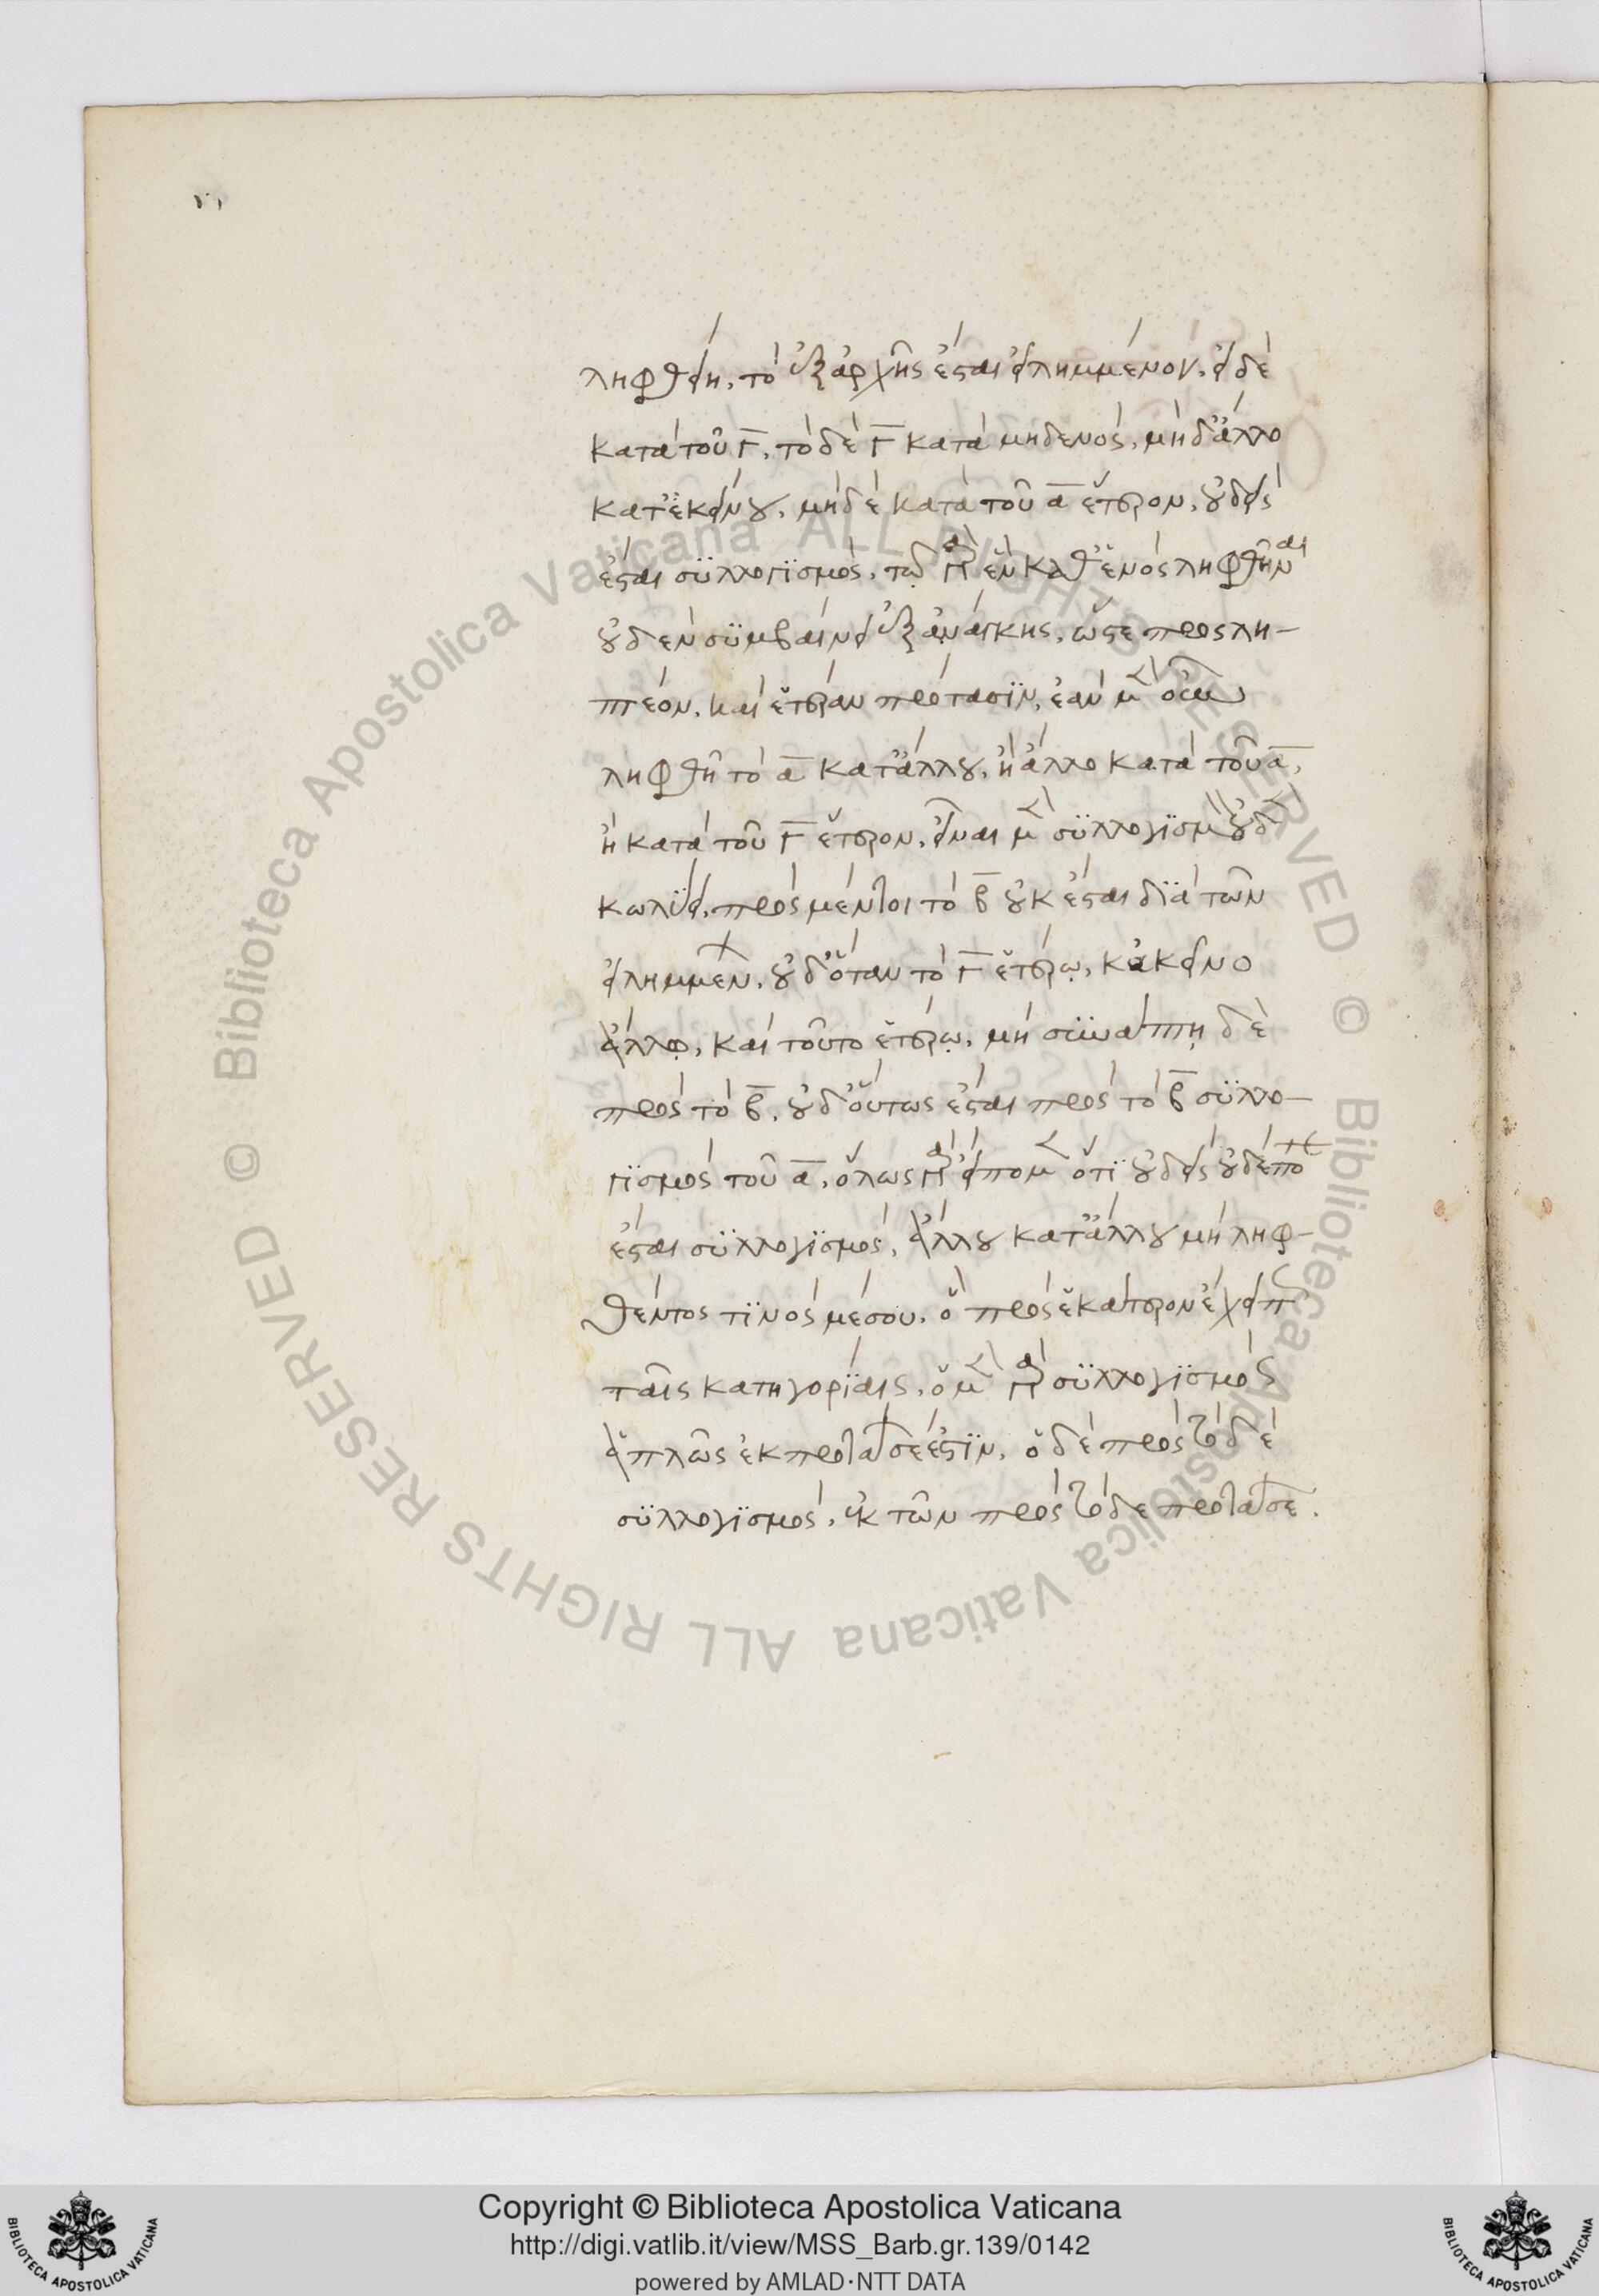 ληφθείη, τὸ ἐξ ἀρχῆς ἔσται εἰλημμένον. εἰ δὲ
κατὰ τοῦ Γ, τὸ δὲ Γ κατὰ μηδενὸς, μὴ δ' ἄλλο
κατ' ἐκείνου, μὴ δὲ κατὰ τοῦ α ἕτερον, οὐδεὶς
ἔσται συλλογισμὸς, τῷ γὰρ ἓν καθ' ἑνὸς ληφθῆναι
οὐδὲν συμβαίνει ἐξ ἀνάγκης, ὥστε προσλη-
πτέον, καὶ ἑτέραν πρότασιν, ἐὰν μὲν οὖν
ληφθῇ τὸ α κατ' ἄλλου, ἢ ἄλλο κατὰ τοῦ α,
ἢ κατὰ τοῦ Γ ἕτερον, εἶναι μὲν συλλογισμὸν οὐδὲν
κωλύει, πρὸς μέντοι τὸ β οὐκ ἔσται διὰ τῶν
εἰλημμένων, οὐδ' ὅταν τὸ Γ ἑτέρῳ, κἀκεῖνο
ἄλλῳ, καὶ τοῦτο ἑτέρῳ, μὴ συνάπτῃ δὲ
πρὸς τὸ β, οὐδ' οὕτως ἔσται πρὸς τὸ β συλλο-
γισμὸς τοῦ α, ὅλως γὰρ εἴπομεν ὅτι οὐδεὶς οὐδέποτε
ἔσται συλλογισμὸς, ἄλλου κατ' ἄλλου μὴ ληφ-
θέντος τινὸς μέσου, ὃ πρὸς ἑκάτερον ἔχει πως
ταῖς κατηγορίαις, ὁ μὲν γὰρ συλλογισμὸς
ἁπλῶς ἐκ προτάσεών ἐστιν, ὁ δὲ πρὸς τόδε
συλλογισμὸς, ἐκ τῶν πρὸς τόδε προτάσεων.
Copyright © Biblioteca Apostolica Vaticana
http://digi.vatlib.it/view/MSS_Barb.gr.139/0142
powered by AMLAD·NTT DATA
© Biblioteca Apostolica Vaticana ALL RIGHTS RESERVED © Biblioteca Apostolica Vaticana ALL RIGHTS RESERVED
BIBLIOTECA APOSTOLICA VATICANA
BIBLIOTECA APOSTOLICA VATICANA